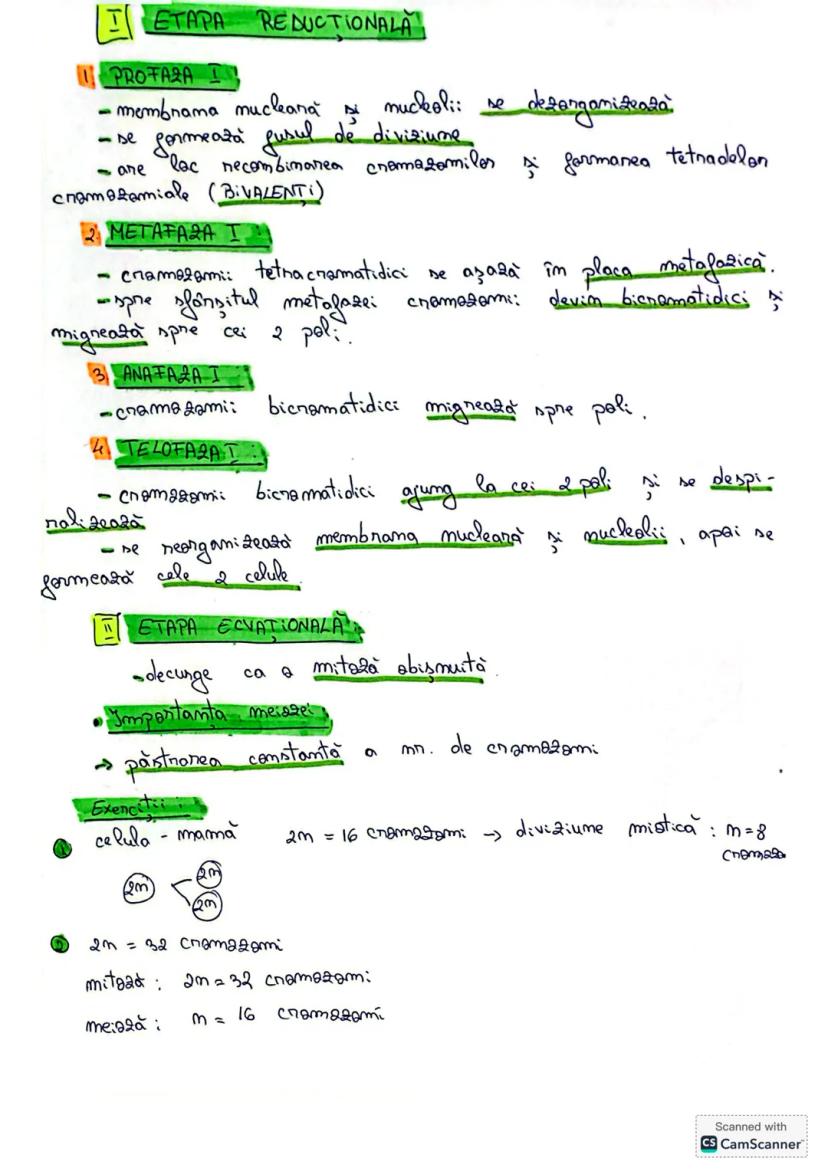 I ETAPA REDUCȚIONALĂ
1. PROFAZA I
- membrana nucleară și nucleolii se dezorganizează
- se formează fusul de diviziune
- are loc recombinarea cromozomilor și formarea tetradelor
cromozomiale (BIVALENȚI)
2. METAFAZA I
- cromozomii tetracromatidici se așază în placa metafazică.
- spre sfârșitul metafazei cromozomii devin bicromatidici și
migrează spre cei 2 poli.
3. ANAFAZA I
- cromozomii bicromatidici migrează spre poli.
4. TELOFAZA I:
- cromozomii bicromatidici ajung la cei 2 poli și se despi-
ralizează
- se reorganizează membrana nucleară și nucleolii, apoi se
formează cele 2 celule.
II ETAPA ECVAȚIONALĂ:
- decurge ca o mitoză obișnuită.
• Importanța meiozei
→ păstrarea constantă a nr. de cromozomi
Exerciții:
1 celula - mamă 2n = 16 cromozomi → diviziune miotică: n=8
cromozo
2n 2n
2n
2 2n = 32 cromozomi
mitoză: 2n = 32 cromozomi
meioză: n = 16 cromozomi
Scanned with
CS CamScanner